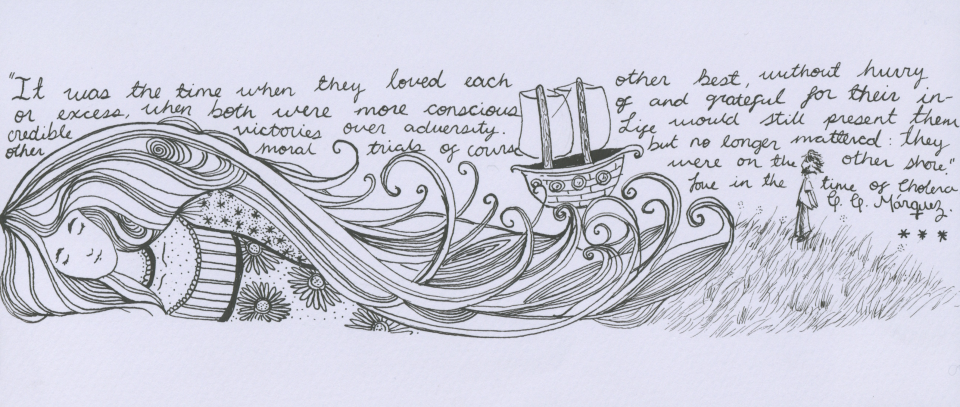 "It was the time when they loved each other best, without hurry
or excess, when both were more conscious of and grateful for their in-
credible victories over adversity. Life would still present them
other moral trials of course but no longer mattered: they
were on the other shore."
Love in the time of Cholera
G. G. Márquez.